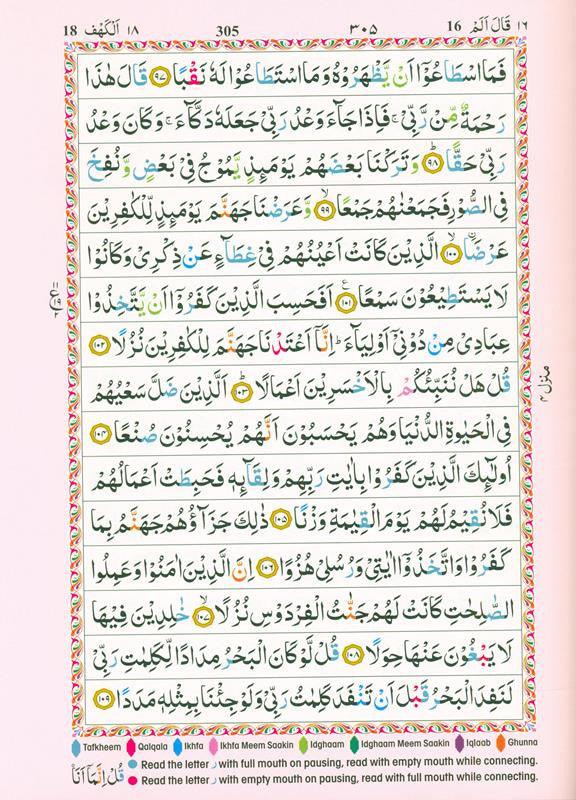 18 اَلْكَهْف ١٨ 305 ٣٠٥ 16 قَالَ اَلَمْ ١٦
فَمَا اسْطَاعُوْۤا اَنْ يَّظْهَرُوْهُ وَمَا اسْتَطَاعُوْا لَهٗ نَقْبًا ﴿۹۷﴾ قَالَ هٰذَا
رَحْمَةٌ مِّنْ رَّبِّىْ ۚ فَاِذَا جَآءَ وَعْدُ رَبِّىْ جَعَلَهٗ دَكَّآءَ ۚ وَكَانَ وَعْدُ
رَبِّىْ حَقًّا ؕ ﴿۹۸﴾ وَتَرَكْنَا بَعْضَهُمْ يَوْمَئِذٍ يَّمُوْجُ فِىْ بَعْضٍ وَّنُفِخَ
فِى الصُّوْرِ فَجَمَعْنٰهُمْ جَمْعًا ۙ ﴿۹۹﴾ وَّعَرَضْنَا جَهَنَّمَ يَوْمَئِذٍ لِّلْكٰفِرِيْنَ
عَرْضَا ۙ ﴿۱۰۰﴾ الَّذِيْنَ كَانَتْ اَعْيُنُهُمْ فِىْ غِطَآءٍ عَنْ ذِكْرِىْ وَكَانُوْا
لَا يَسْتَطِيْعُوْنَ سَمْعًا ﴿۱۰۱﴾ اَفَحَسِبَ الَّذِيْنَ كَفَرُوْۤا اَنْ يَّتَّخِذُوْا
عِبَادِىْ مِنْ دُوْنِىْۤ اَوْلِيَآءَ ؕ اِنَّاۤ اَعْتَدْنَا جَهَنَّمَ لِلْكٰفِرِيْنَ نُزُلًا ﴿۱۰۲﴾
قُلْ هَلْ نُنَبِّئُكُمْ بِالْاَخْسَرِيْنَ اَعْمَالًا ؕ ﴿۱۰۳﴾ اَلَّذِيْنَ ضَلَّ سَعْيُهُمْ
فِى الْحَيٰوةِ الدُّنْيَا وَهُمْ يَحْسَبُوْنَ اَنَّهُمْ يُحْسِنُوْنَ صُنْعًا ﴿۱۰۴﴾
اُولٰٓئِكَ الَّذِيْنَ كَفَرُوْا بِاٰيٰتِ رَبِّهِمْ وَلِقَآئِهٖ فَحَبِطَتْ اَعْمَالُهُمْ
فَلَا نُقِيْمُ لَهُمْ يَوْمَ الْقِيٰمَةِ وَزْنًا ﴿۱۰۵﴾ ذٰلِكَ جَزَآؤُهُمْ جَهَنَّمُ بِمَا
كَفَرُوْا وَاتَّخَذُوْۤا اٰيٰتِىْ وَرُسُلِىْ هُزُوًا ﴿۱۰۶﴾ اِنَّ الَّذِيْنَ اٰمَنُوْا وَعَمِلُوا
الصّٰلِحٰتِ كَانَتْ لَهُمْ جَنّٰتُ الْفِرْدَوْسِ نُزُلًا ۙ ﴿۱۰۷﴾ خٰلِدِيْنَ فِيْهَا
لَا يَبْغُوْنَ عَنْهَا حِوَلًا ﴿۱۰۸﴾ قُلْ لَّوْ كَانَ الْبَحْرُ مِدَادًا لِّكَلِمٰتِ رَبِّىْ
لَنَفِدَ الْبَحْرُ قَبْلَ اَنْ تَنْفَدَ كَلِمٰتُ رَبِّىْ وَلَوْ جِئْنَا بِمِثْلِهٖ مَدَدًا ﴿۱۰۹﴾
منزل ۴
Tafkheem Qalqala Ikhfa Ikhfa Meem Saakin Idghaam Idghaam Meem Saakin Iqlaab Ghunna
Read the letter ر with full mouth on pausing, read with empty mouth while connecting.
Read the letter ر with empty mouth on pausing, read with full mouth while connecting.
قُلْ اِنَّمَاۤ اَنَا